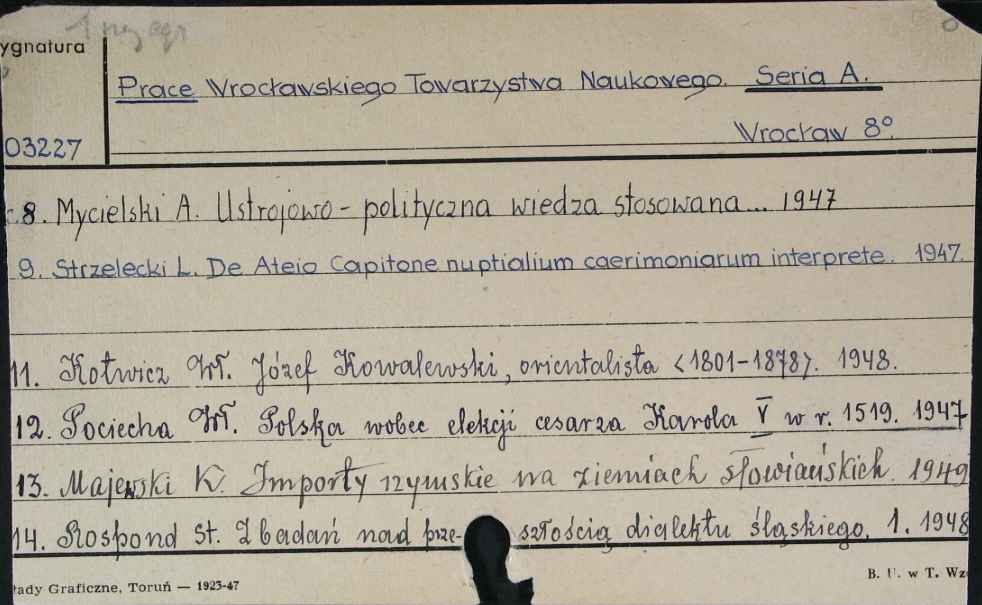 1 reg. egz.
ygnatura
Prace Wrocławskiego Towarzystwa Naukowego. Seria A.
03227
Wrocław 8°.
c.8. Mycielski A. Ustrojowo-polityczna wiedza stosowana... 1947
9. Strzelecki L. De Ateio Capitone nuptialium caerimoniarum interprete. 1947.
11. Kotwicz Wł. Józef Kowalewski, orientalista <1801-1878>. 1948.
12. Pociecha Wł. Polska wobec elekcji cesarza Karola V w r. 1519. 1947
13. Majewski K. Importy rzymskie na ziemiach słowiańskich. 1949
14. Rospond St. Z badań nad prze- szłością dialektu śląskiego. 1. 1948
łady Graficzne, Toruń — 1923-47
B. U. w T. Wzó